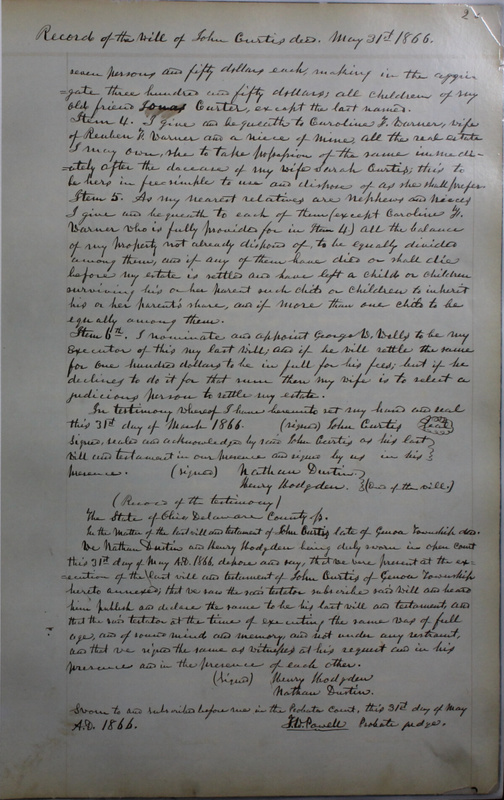 2
Record of the Will of John Curtis decd. May 31st 1866.
seven persons and fifty dollars each, making in the aggre-
=gate three hundred and fifty dollars; all children of my
old friend Jonas Carter, except the last named.
Item 4. I give and bequeath to Caroline F. Warner, wife
of Reuben F. Warner and a niece of mine, all the real estate
I may own, she to take possession of the same immedi-
=ately after the decease of my wife Sarah Curtis; this to
be hers in fee simple to use and dispose of as she shall prefer.
Item 5. As my nearest relatives are nephews and nieces
I give and bequeath to each of them (except Caroline F.
Warner who is fully provided for in Item 4) all the balance
of my property not already disposed of, to be equally divided
among them, and if any of them have died or shall die
before my estate is settled and have left a child or children
surviving his or her parent such child or children to inherit
his or her parent's share, and if more than one child to be
equally among them.
Item 6th. I nominate and appoint George W. Wells to be my
Executor of this my last will; and if he will settle the same
for one hundred dollars to be in full for his fees; but if he
declines to do it for that sum then my wife is to select a
judicious person to settle my estate.
In testimony whereof I have hereunto set my hand and seal
this 31st day of March 1866. (signed) John Curtis Seal
Signed, sealed and acknowledged by said John Curtis as his last
will and testament in our presence and signed by us in his
presence. (signed) Nathan Dustin
Henry Hodgden. (End of the will.)
(Record of the testimony)
The State of Ohio Delaware County ss.
In the Matter of the last will and testament of John Curtis late of Genoa Township decd.
We Nathan Dustin and Henry Hodgden being duly sworn in open Court
this 31st day of May A.D. 1866, depose and say, that we were present at the ex-
=ecution of the last will and testament of John Curtis of Genoa Township
hereto annexed; that we saw the said testator subscribe said will and heard
him publish and declare the same to be his last will and testament; and
that the said testator at the time of executing the same was of full
age, and of sound mind and memory, and not under any restraint,
and that we signed the same as witnesses at his request and in his
presence and in the presence of each other.
(Signed) Henry Hodgden
Nathan Dustin.
Sworn to and subscribed before me in the Probate Court, this 31st day of May
A.D. 1866. T.W. Powell Probate judge.